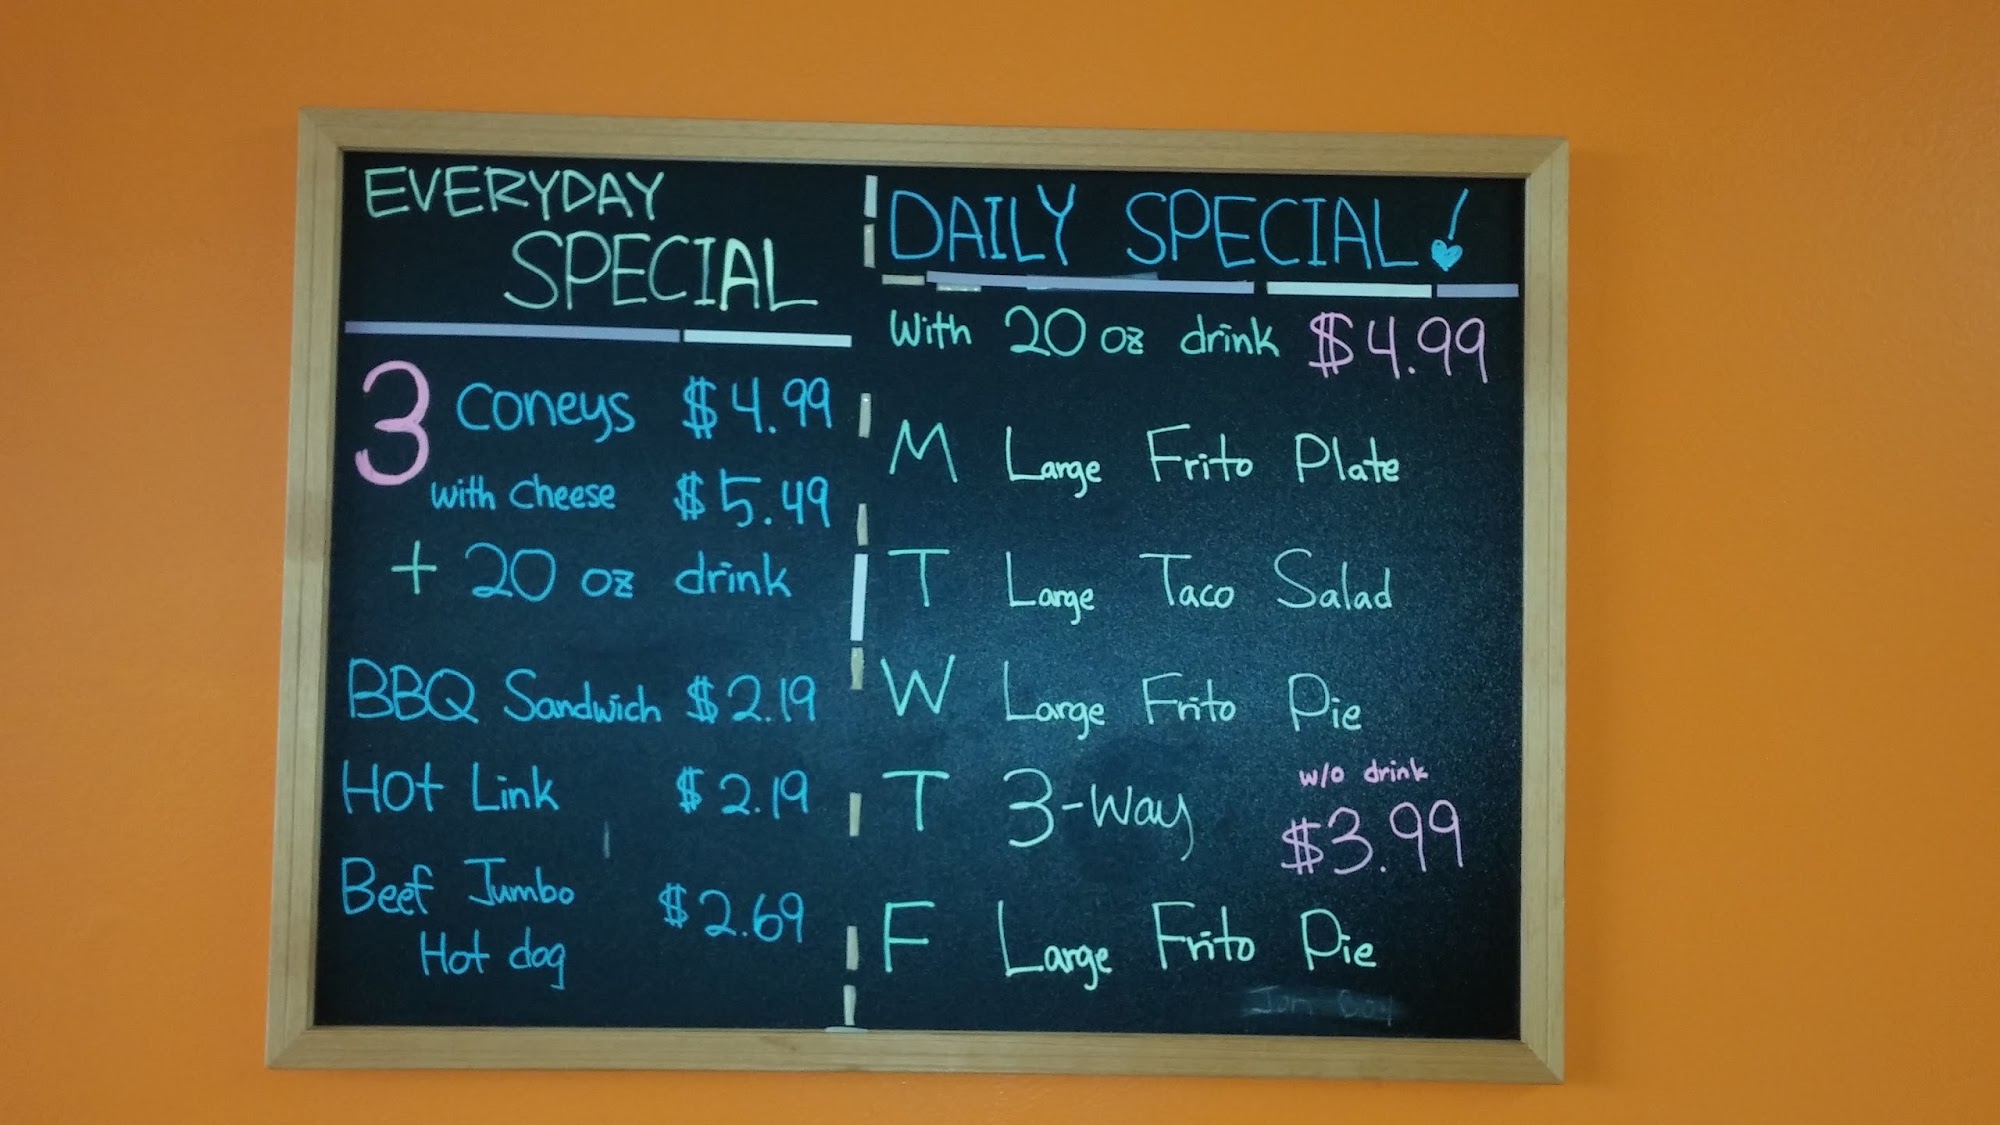 EVERYDAY
SPECIAL
3 Coneys $4.99
with Cheese $5.49
+ 20 oz drink
BBQ Sandwich $2.19
Hot Link $2.19
Beef Jumbo
Hot dog $2.69
DAILY SPECIAL!
With 20 oz drink $4.99
M Large Frito Plate
T Large Taco Salad
W Large Frito Pie
w/o drink
T 3-Way $3.99
F Large Frito Pie